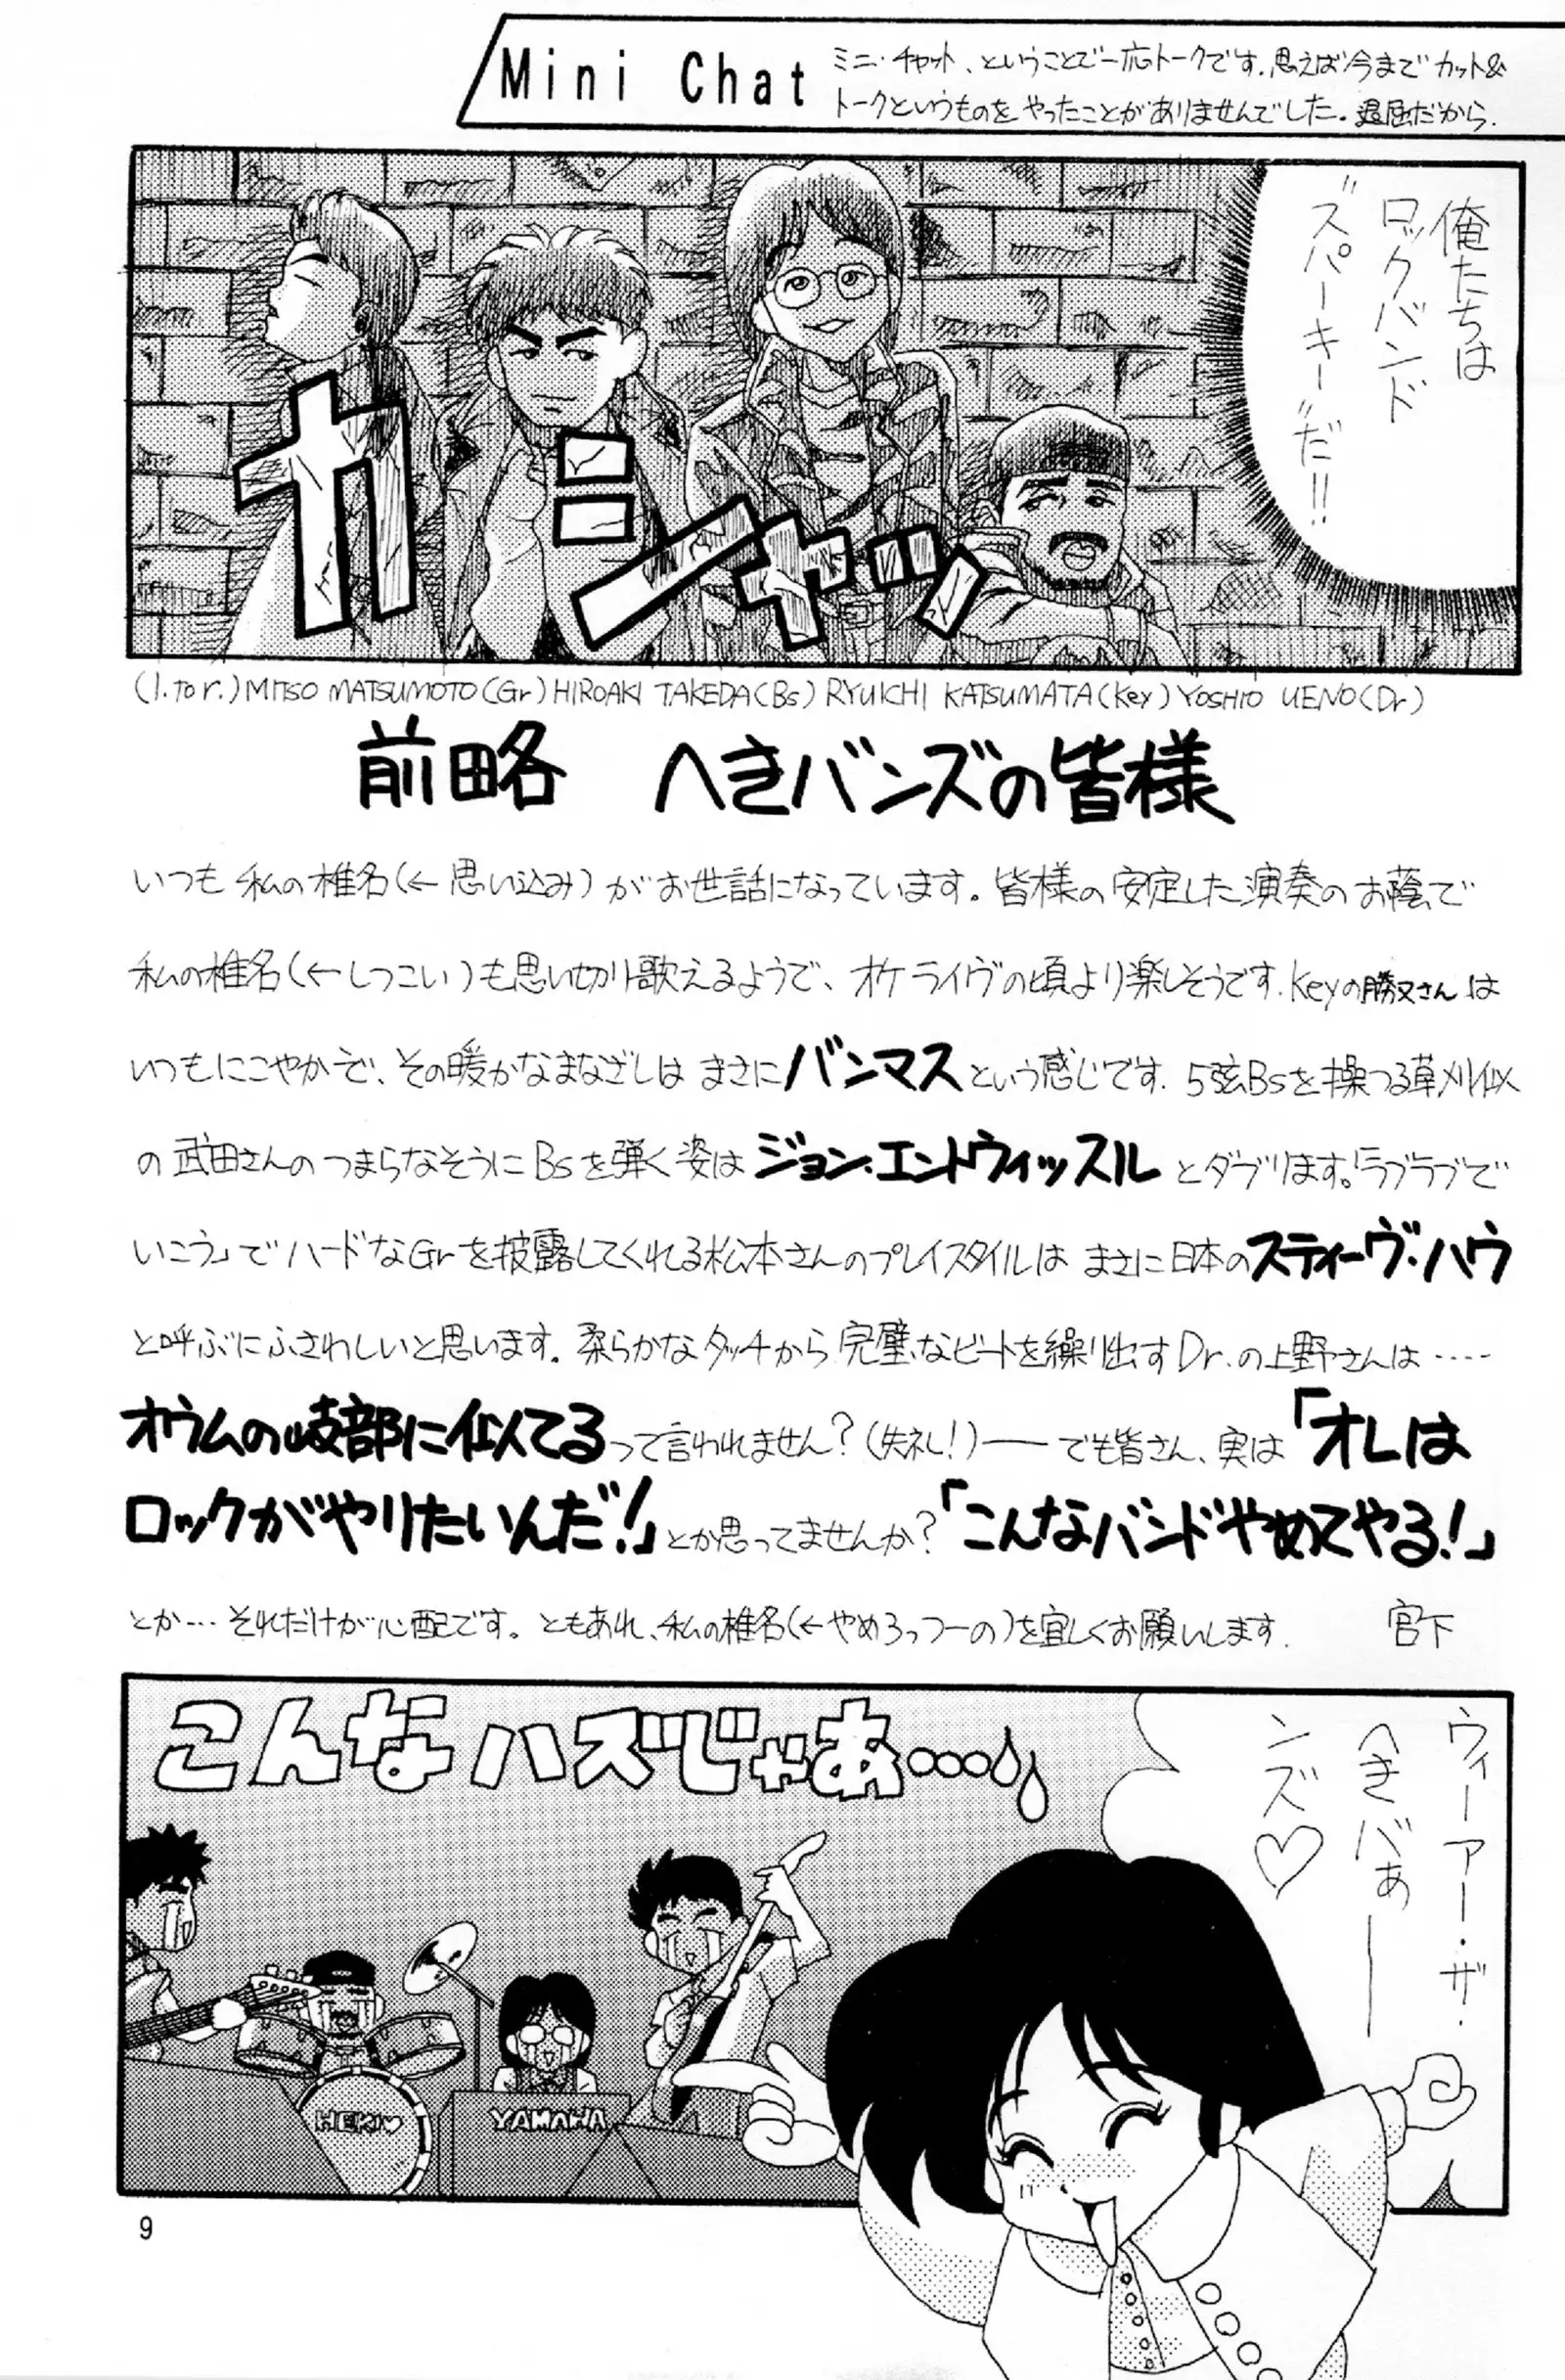 Mini Chat
ミニ・チャット、ということで一応トークです。思えば今までカット&
トークというものをやったことがありませんでした。退屈だから.
俺たちは
ロックバンド
"スパーキー"だ!!
ガシャッ
(l.to r.) MITSO MATSUMOTO(Gr) HIROAKI TAKEDA(Bs) RYUICHI KATSUMATA(Key) YOSHIO UENO(Dr)
前略 へきバンズの皆様
いつも私の椎名(←思い込み)がお世話になっています。皆様の安定した演奏のお蔭で
私の椎名(←しつこい)も思い切り歌えるようで、オケライヴの頃より楽しそうです.Keyの勝又さんは
いつもにこやかで、その暖かなまなざしはまさにバンマスという感じです.5弦Bsを操つる草刈似
の武田さんのつまらなそうにBsを弾く姿はジョン・エントウィッスルとダブります。「ラブラブで
いこう」でハードなGrを披露してくれる松本さんのプレイスタイルはまさに日本のスティーヴ・ハウ
と呼ぶにふさわしいと思います。柔らかなタッチから完璧なビートを繰り出すDr.の上野さんは……
オウムの岐部に似てるって言われません?(失礼!)──でも皆さん、実は「オレは
ロックがやりたいんだ!」とか思ってませんか?「こんなバンドやめてやる!」
とか…それだけが心配です。ともあれ、私の椎名(←やめろっつーの)を宜しくお願いします. 宮下
こんなハズじゃあ…
ウィーアー・ザ・
へきバぁー
ンズ♡
HEKI♥
YAMAHA
9